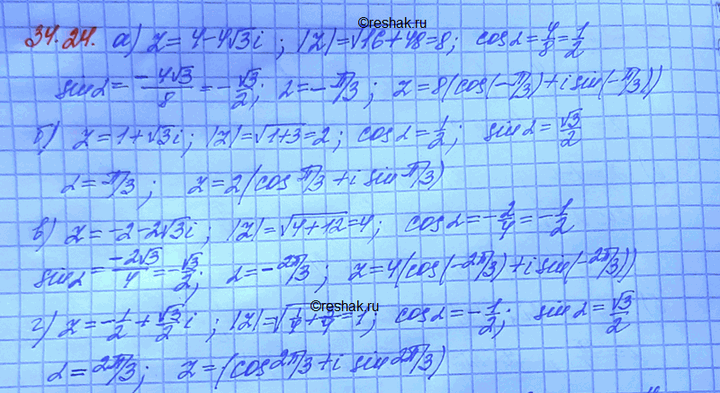 ©reshak.ru
34.24. а) z = 4-4√3i ; |z|=√16+48=8; cosα=4/8=1/2
sinα= -4√3/8 = -√3/2; α=-π/3 ; z=8(cos(-π/3)+i sin(-π/3))
б) z=1+√3i; |z|=√1+3=2; cosα=1/2; sinα=√3/2
α=π/3; z=2(cos π/3 +i sin π/3)
в) z=-2-2√3i ; |z|=√4+12=4; cosα=-2/4=-1/2
sinα= -2√3/4 =-√3/2; α=-2π/3 ; z=4(cos(-2π/3)+i sin(-2π/3))
©reshak.ru
г) z=-1/2+√3/2 i ; |z|=√1/4+3/4=1; cosα=-1/2; sinα=√3/2
α=2π/3; z=(cos 2π/3 +i sin 2π/3)